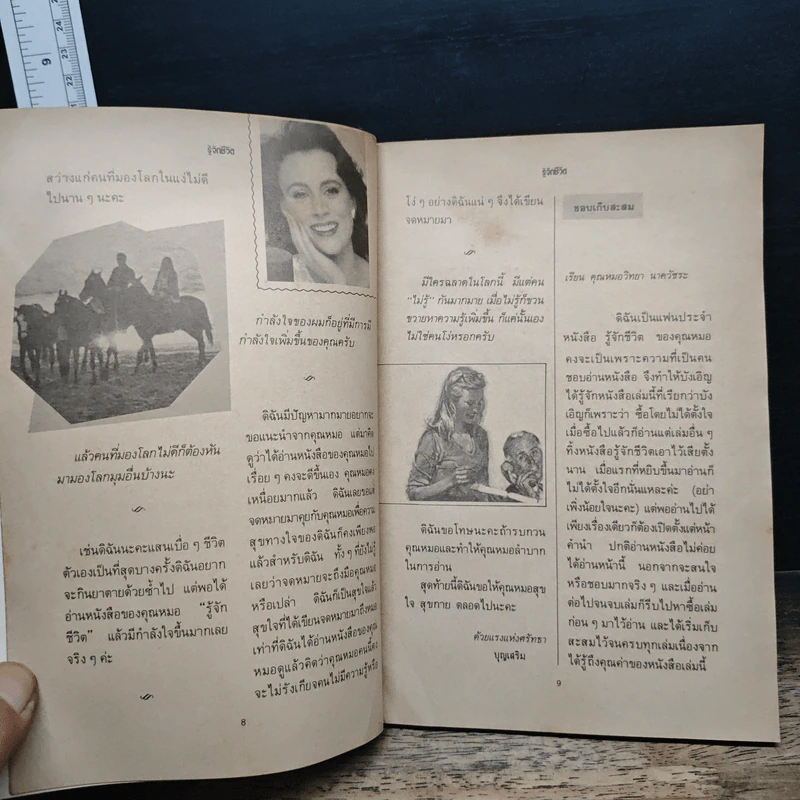 รู้จักชีวิต
สว่างแก่คนที่มองโลกในแง่ไม่ดี
ไปนาน ๆ นะคะ
แล้วคนที่มองโลกไม่ดีก็ต้องหัน
มามองโลกมุมอื่นบ้างนะ
เช่นดิฉันนะคะแสนเบื่อ ๆ ชีวิต
ตัวเองเป็นที่สุดบางครั้งดิฉันอยาก
จะกินยาตายด้วยซ้ำไป แต่พอได้
อ่านหนังสือของคุณหมอ “รู้จัก
ชีวิต” แล้วมีกำลังใจขึ้นมากเลย
จริง ๆ ค่ะ
กำลังใจของผมก็อยู่ที่มีการมี
กำลังใจเพิ่มขึ้นของคุณครับ
ดิฉันมีปัญหามากมายอยากจะ
ขอแนะนำจากคุณหมอ แต่มาคิด
ดูว่าได้อ่านหนังสือของคุณหมอไป
เรื่อย ๆ คงจะดีขึ้นเอง คุณหมอคง
เหนื่อยมากแล้ว ดิฉันเลยขอแค่
จดหมายมาคุยกับคุณหมอเพื่อความ
สุขทางใจของดิฉันก็คงเพียงพอ
แล้วสำหรับดิฉัน ทั้ง ๆ ที่ยังไม่รู้
เลยว่าจดหมายจะถึงมือคุณหมอ
หรือเปล่า ดิฉันก็เป็นสุขใจแล้ว
สุขใจที่ได้เขียนจดหมายมาถึงหมอ
เท่าที่ดิฉันได้อ่านหนังสือของคุณ
หมอดูแล้วคิดว่าคุณหมอคนนี้คง
จะไม่รังเกียจคนไม่มีความรู้หรือ
8
รู้จักชีวิต
โง่ ๆ อย่างดิฉันแน่ ๆ จึงได้เขียน
จดหมายมา
มีใครฉลาดในโลกนี้ มีแต่คน
“ไม่รู้” กันมากมาย เมื่อไม่รู้ก็ชวน
ขวายหาความรู้เพิ่มขึ้น ก็แค่นั้นเอง
ไม่ใช่คนโง่หรอกครับ
ดิฉันขอโทษนะคะถ้ารบกวน
คุณหมอและทำให้คุณหมอลำบาก
ในการอ่าน
สุดท้ายนี้ดิฉันขอให้คุณหมอสุข
ใจ สุขกาย ตลอดไปนะคะ
ด้วยแรงแห่งศรัทธา
บุญเสริม
ชอบเก็บสะสม
เรียน คุณหมอวิทยา นาควัชระ
ดิฉันเป็นแฟนประจำ
หนังสือ รู้จักชีวิต ของคุณหมอ
คงจะเป็นเพราะความที่เป็นคน
ชอบอ่านหนังสือ จึงทำให้บังเอิญ
ได้รู้จักหนังสือเล่มนี้ที่เรียกว่าบัง
เอิญก็เพราะว่า ซื้อโดยไม่ได้ตั้งใจ
เมื่อซื้อไปแล้วก็อ่านแต่เล่มอื่น ๆ
ทิ้งหนังสือรู้จักชีวิตเอาไว้เสียตั้ง
นาน เมื่อแรกที่หยิบขึ้นมาอ่านก็
ไม่ได้ตั้งใจอีกนั่นแหละค่ะ (อย่า
เพิ่งน้อยใจนะคะ) แต่พออ่านไปได้
เพียงเรื่องเดียวก็ต้องเปิดตั้งแต่หน้า
คำนำ ปกติอ่านหนังสือไม่ค่อย
ได้อ่านหน้านี้ นอกจากจะสนใจ
หรือชอบมากจริง ๆ และเมื่ออ่าน
ต่อไปจนจบเล่มก็รีบไปหาซื้อเล่ม
ก่อน ๆ มาไว้อ่าน และได้เริ่มเก็บ
สะสมไว้จนครบทุกเล่มเนื่องจาก
ได้รู้ถึงคุณค่าของหนังสือเล่มนี้
9